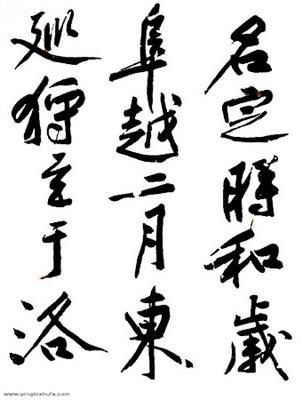 名定時和歲
阜越二月東
巡狩至于洛
www.yingbishufa.com